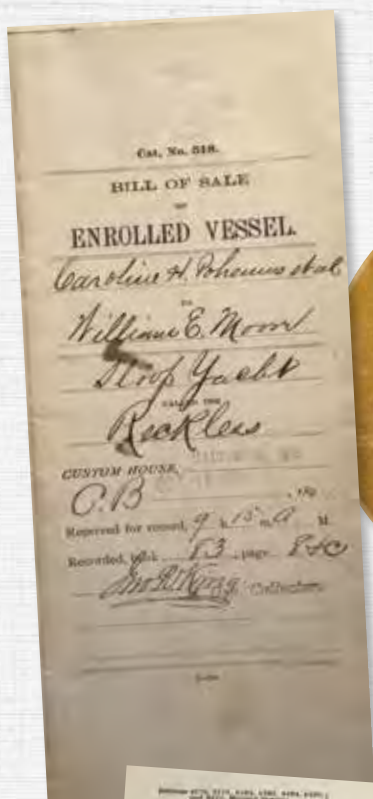 Cat. No. 518.
BILL OF SALE
OF
ENROLLED VESSEL.
Caroline H. et al
TO
William E. Moon
Sloop Yacht
CALLED THE
Reckless
CUSTOM HOUSE,
C.B
, 189
Received for record, 9 h 15 m A M.
Recorded, book 83, page
Collector.